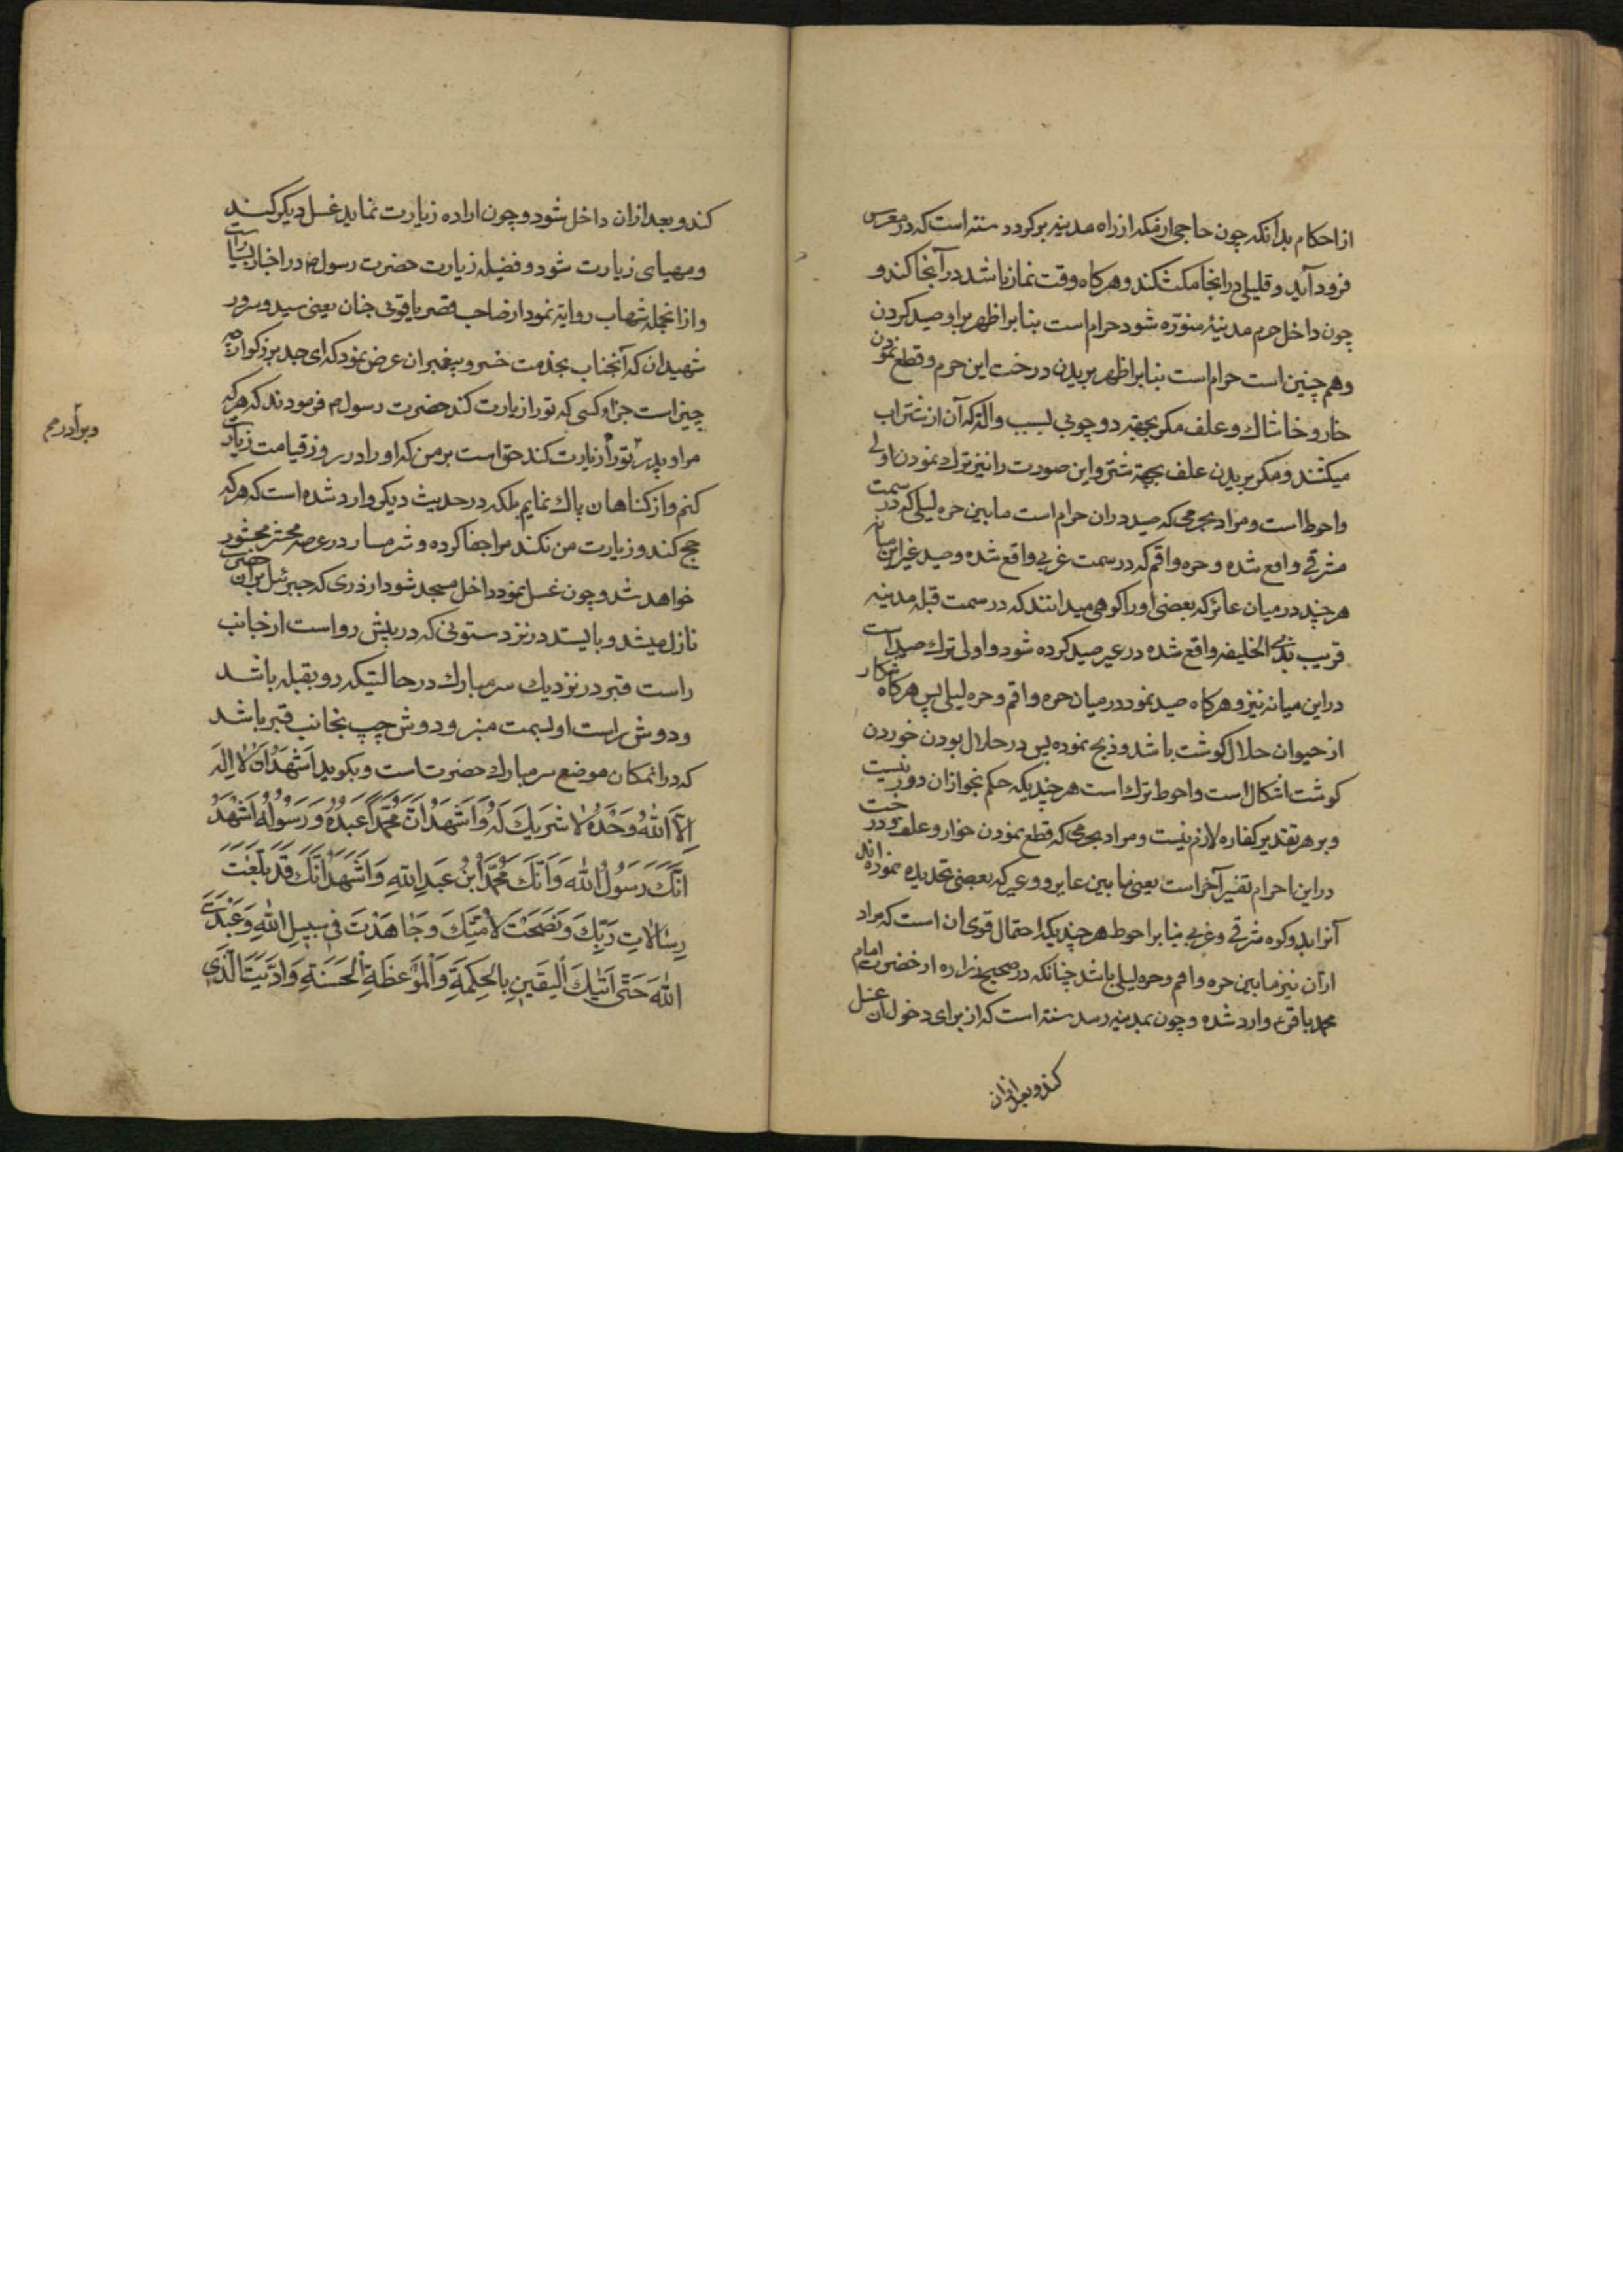 از احکام بدانکه چون حاجی از مکه از راه مدینه برکردد سنته است که در معرس
فرود آید و قلیلی در اینجا مکث کند و هرکاه وقت نماز باشد در آنجا کند و
چون داخل حرم مدینهٔ منوّره شود حرام است بنابر اظهر بر او صید کردن
و هم چنین است حرام است بنابر اظهر بریدن درخت این حرم و قطع نمودن
خار و خاشاك و علف مکر بجهة دو چوبی که آن از شتر آب
میکشند و مکر بریدن علف بجهة شتر و این صورت را نیز ترك نمودن اولی
و احوط است و مراد بحرمی که صید در ان حرام است ما بین حره لیلی که در سمت
شرقی واقع شده و حره واقم که در سمت غربی واقع شده و صید غیر این میانه
هر چند در میان عائر که بعضی او را کوهی میدانند که در سمت قبله مدینه
قریب بذی الخلیفه واقع شده در عیر صید کرده شود و اولی ترك صید است
در این میانه نیز و هرکاه صید نمود در میان حره واقم و حره لیلی پس هرکاه شکار
از حیوان حلال کوشت باشد و ذبح نموده پس در حلال بودن خوردن
کوشت اشکال است و احوط ترك است هر چند یکه حکم بجواز ان دور نیست
و بر هر تقدیر کفاره لازم نیست و مراد بحرمی که قطع نمودن خوار و علف و درخت
در این احرام تفسیر آخر است یعنی ما بین عایر و وعیر که بعضی تحدیده نموده اند
آنرا بدو کوه شرقی و غربی بنابر احوط هر چند یکه احتمال قوی ان است که مراد
از آن نیز ما بین حره واقم و حره لیلی باشد چنانکه در صحیح زراره از حضرت امام
محمد باقر ع وارد شده و چون بمدینه رسد سنته است که از برای دخول ان غسل
کند و بعد از ان
کند و بعد از ان داخل شود و چون اراده زیارت نماید غسل دیکر کند
و مهیای زیارت شود و فضیله زیارت حضرت رسول ص در اخبار بسیار است
و از انجمله شهاب روایة نمود از صاحب قصر یاقوتی جنان یعنی سید و سرور
شهیدان که آنجناب بخدمت خسرو پیغمبران عرض نمود که ای جد بزرکوار چه
چیز است جزاء کسی که تو را زیارت کند حضرت رسول ص فرمودند که هر که
مرا و پدر تو را زیارت کند حق است بر من که او را در روز قیامت زیارت
کنم و از کناهان پاك نمایم بلکه در حدیث دیکر وارد شده است که هر که
حج کند و زیارت من نکند مرا جفا کرده و شرمسار در عرصه محشر محشور
خواهد شد و چون غسل نمود داخل مسجد شود از دری که جبرئیل بر آن حضرت
نازل میشد و بایستد در نزد ستونی که در پیش رو است از جانب
راست قبر در نزدیك سر مبارك در حالتیکه رو بقبله باشد
و دوش راست او بسمت منبر و دوش چپ بجانب قبر باشد
که در انمکان موضع سر مبارك حضرت است و بکوید اَشْهَدُ اَنْ لا اِلٰهَ
اِلاَّ اللهُ وَحْدَهُ لا شَرِیكَ لَهُ وَ اَشْهَدُ اَنَّ مُحَمَّداً عَبْدُهُ وَ رَسُولُهُ اَشْهَدُ
اَنَّكَ رَسُولُ اللهِ وَ اَنَّكَ مُحَمَّدُ ابْنُ عَبْدِ اللهِ وَ اَشْهَدُ اَنَّكَ قَدْ بَلَّغْتَ
رِسالاتِ رَبِّكَ وَ نَصَحْتَ لِاُمَّتِكَ وَ جاهَدْتَ فی سَبیلِ اللهِ وَ عَبَدْتَ
اللهَ حَتّٰی اَتٰیكَ الْیَقینِ بِالْحِکْمَةِ وَ الْمَوْعِظَةِ الْحَسَنَةِ وَ اَدَّیْتَ الَّذی